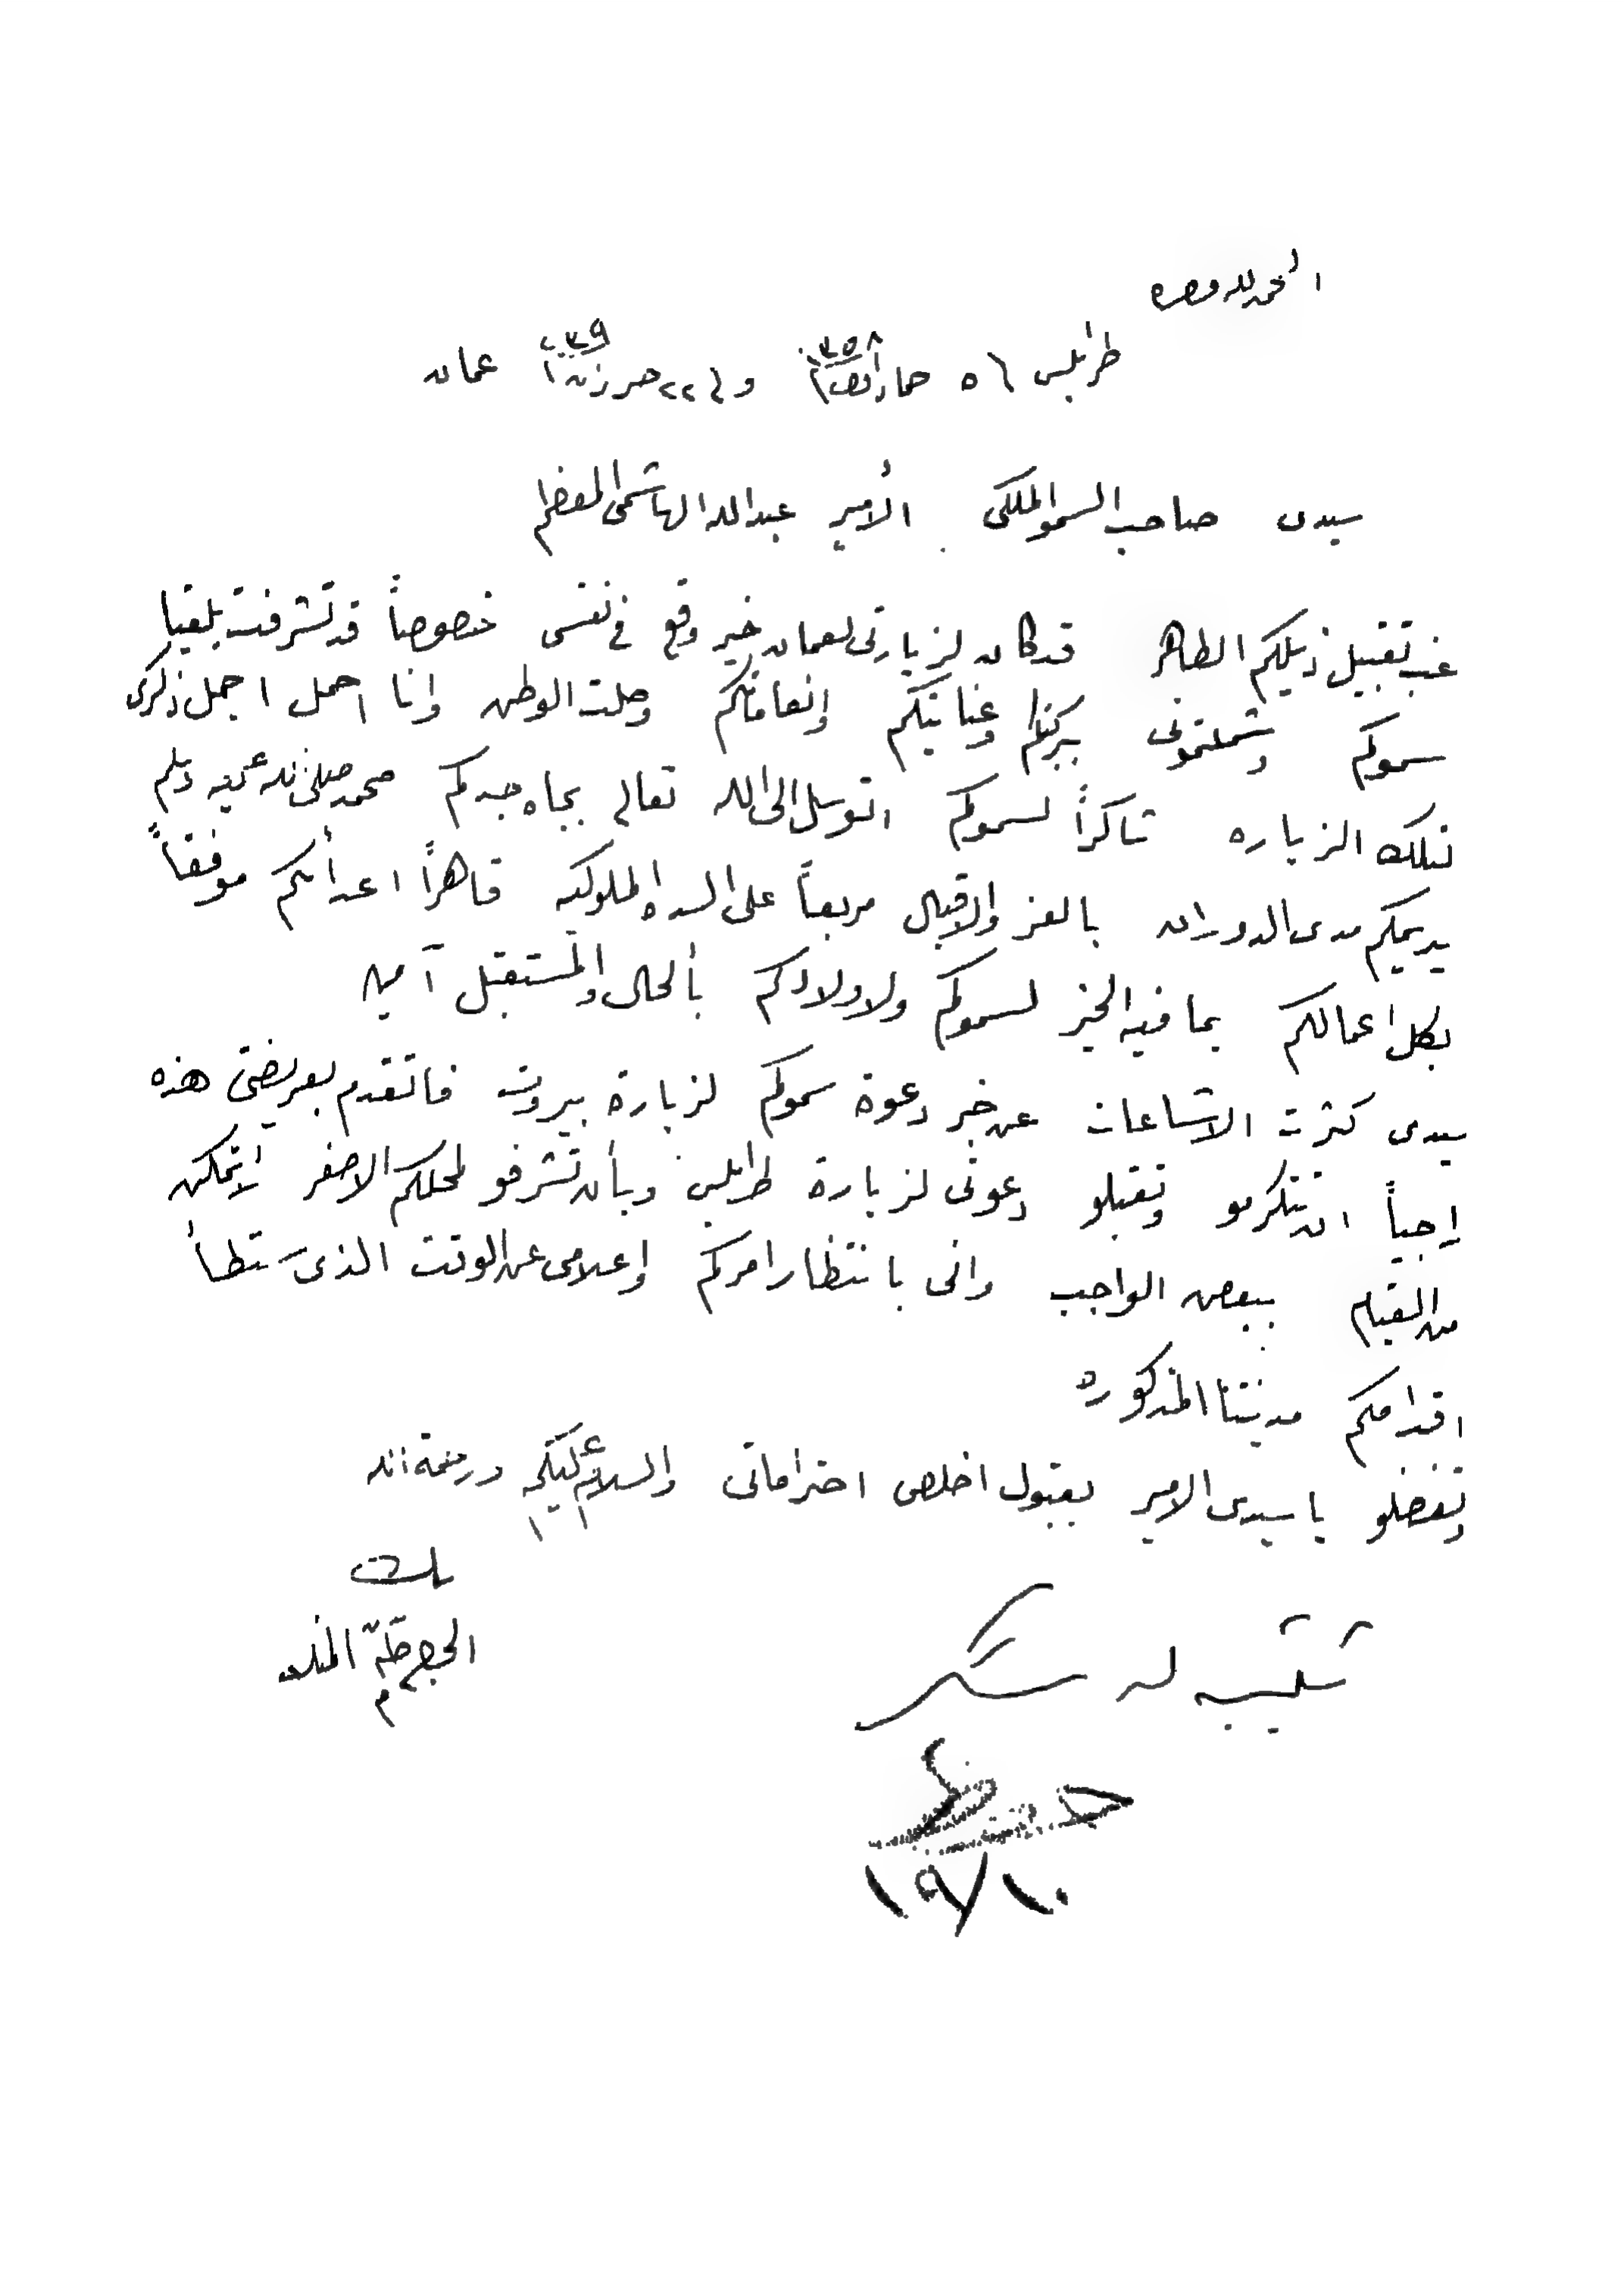 الحمد لله وحده
طرابلس في ٥ جماد ١٣٥٨ و في ٢٢ حزيران ١٩٣٩ عمان
سيدى صاحب السمو الملكى الأمير عبدالله الهاشمى المعظم
غب تقبيل ذيلكم الطاهر قد كان لزيارتى لعمان خير وقع فى نفسى خصوصاً قد تشرفت بلقيا
سموكم وشملتمونى ببركتكم وعنايتكم وإنعاماتكم وصلت الوطن وانا احمل اجمل ذكرى
لتلك الزياره شاكراً لسموكم اتوسل الى الله تعالى بجاه جدكم محمد صلى الله عليه وسلم
يديمكم مدى الدوران بالعز والاقبال مربعاً على السده الملوكيه قاهراً اعدأئكم موفقاً
بكل اعمالكم بما فيه الخير لسموكم ولاولادكم بألحال والمستقبل آمين
سيدى كثرت الاشاعات عن خبر دعوة سموكم لزيارة بيروت فاتقدم بعريضتى هذه
راجياً ان تتكرمو وتقبلو دعوتى لزيارة طرابلس وبأن تشرفو لمحلكم الاصغر لأتمكن
من القيام ببعض الواجب وانى بانتظار امركم واعلامى عن الوقت الذى ستطأ
اقدامكم مدينتنا المذكوره
وتفضلو يا سيدى الامير بقبول اخلص احتراماتى والسلام عليكم ورحمة الله
الحاج
يكتب له شكر
١٩/١٠